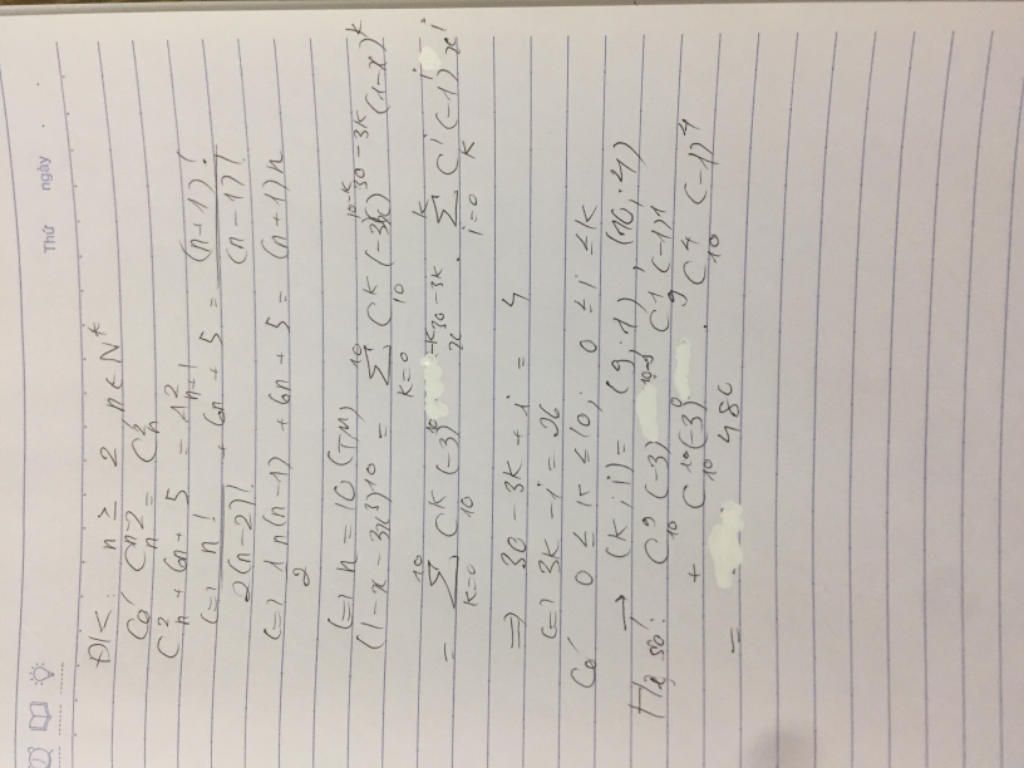 Thứ ngày
ĐK: n ≥ 2 n ∈ N*
Có C_n^{n-2} = C_n^2
C_n^2 + 6n + 5 = A_{n+1}^2
(=) n!/2(n-2)! + 6n + 5 = (n+1)!/(n-1)!
(=) 1/2 n(n-1) + 6n + 5 = (n+1)n
(=) n = 10 (TM)
(1-x-3x^3)^10 = ∑_{k=0}^{10} C_{10}^k (-3x)^{10-k} ^{30-3k} (1-x)^k
= ∑_{k=0}^{10} C_{10}^k (-3)^{10-k} x^{30-3k} . ∑_{i=0}^{k} C_k^i (-1)^i x^i
=> 30 - 3k + i = 4
(=) 3k - i = 26
Có 0 ≤ k ≤ 10; 0 ≤ i ≤ k
→ (k, i) = (9.1), (10.4)
Hệ số: C_{10}^9 (-3)^{10-9} . C_9^1 (-1)^1
+ C_{10}^{10} (-3)^0 C_{10}^4 (-1)^4
= 480